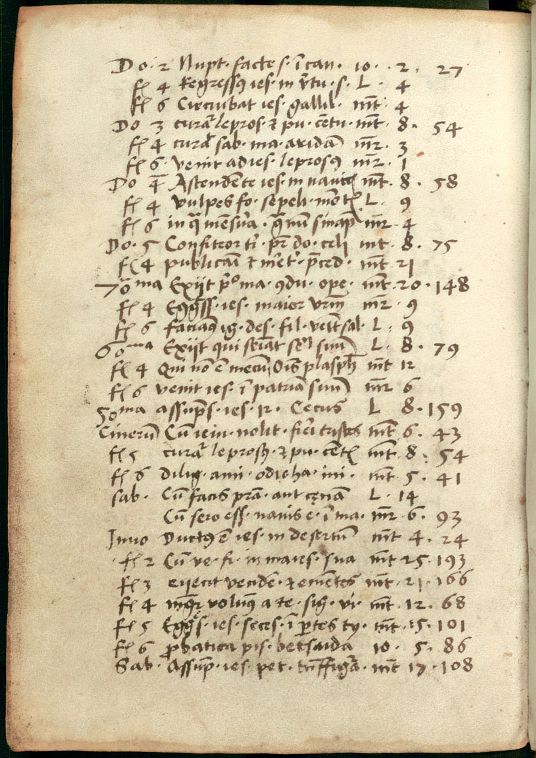 Do · 2 Nupt · facte s · i can · 10 · · 2 · 27
fĺ 4 Regressꝰ ies · in v̓tu · s · L · 4
fĺ 6 Circuibat ies · gallil · mt̄ · 4
Do 3 curaꝶ lepros · ⁊ pu · cētu · mt̄ · 8 · 54
fĺ 4 curaꝶ sab · ma · aridā mr̄ · 3
fĺ 6 venit ad ies · leprosꝰ mr̄ · 1
Do 4 Ascendēte ies · in navic̄ mt̄ · 8 · 58
fĺ 4 vulpes fo · sepeli · L · 9
fĺ 6 in q̄ mēsura · sinap̄ mr̄ · 4
Do · 5 Confiteor ti · pr̄ do · celi mt̄ · 8 · 75
fĺ 4 publicani ⁊ · p̄ced · mt̄ 21
70 ma Exijt p̓º ma · 9du · ope · mt̄ · 20 · 148
fĺ 4 Egss̄ · ies · maior mr̄ · 9
fĺ 6 · des · fil · L · 9
60 ma Exijt qui L · 8 · 79
fĺ 4 Qui nō ē mecū · plasph̄ mt̄ 12
fĺ 6 venit ies · i patriā suā mr̄ 6
50 ma assūpˢ · ies · 12 · Cecus L 8 · 159
Cinerū Cū ieiu · nolit · fieri tristes mt̄ 6 · 43
fĺ 5 curaꝶ leprosꝫ · ⁊ pu · cēt̄ · mt̄ · 8 · 54
fĺ 6 dilig · ami · odie ha · ini · mt̄ · 5 · 41
sab · Cū facis prā · aut cenā L · 14
Cū sero ess̄ · navis e · i ma · mr̄ · 6 · 93
Invo Ductꝰ ē ies · in desertū mt̄ 4 · 24
fĺ 2 Cū ve · fi · in maies · sua mt̄ 25 · 193
fĺ 3 eijecit vendē · ⁊ emētes mt̄ · 21 · 166
fĺ 4 mḡr volumꝰ a te · sig · vi · mt̄ · 12 · 68
fĺ 5 Egss̄ · ies · seces · i p̄tes ty · mt̄ · 15 · 101
fĺ 6 p̄batica pis · betsaida 10 · 5 · 86
Sab · Assūp̄ · ies · pet · trāsfigā · mt̄ 17 · 108